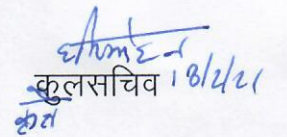 कुलसचिव 18/2/21
कृते